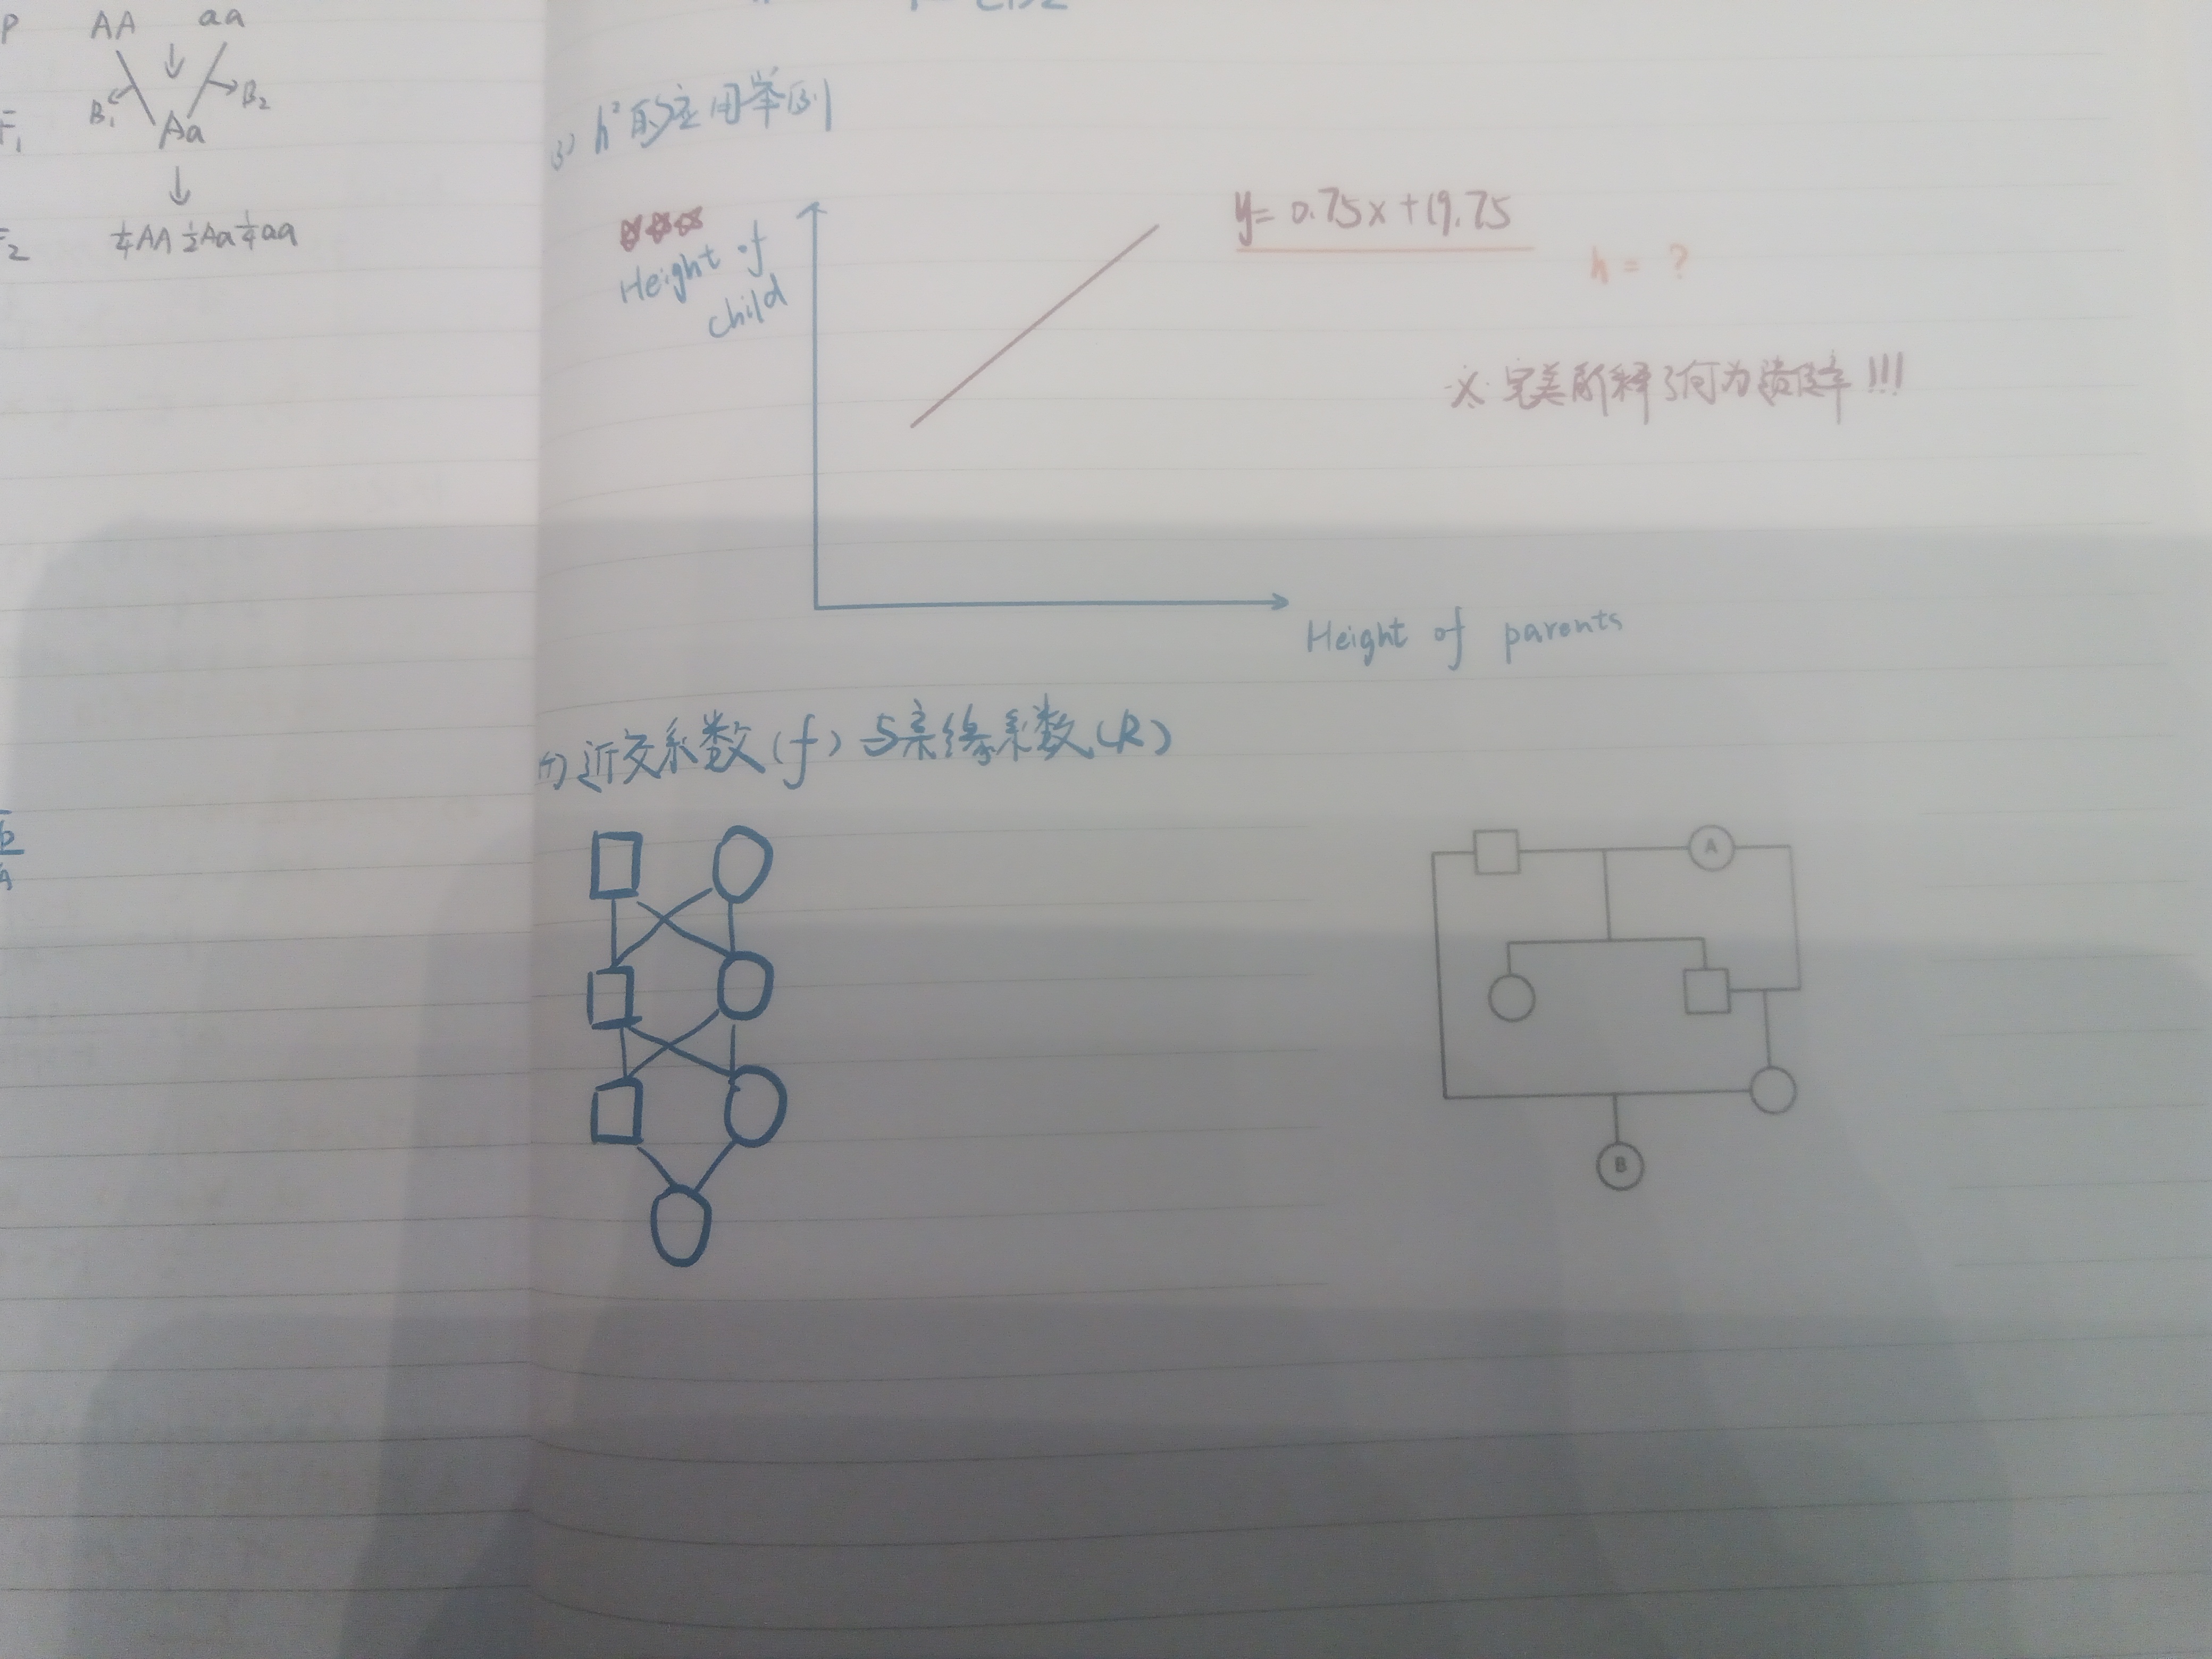 P AA aa
B₁ B₂
F₁ Aa
F₂ ¼AA ½Aa ¼aa
(3) h²的应用举例
Height of
child
y=0.75x+19.75
h = ?
※ 完美解释了何为遗传率!!!
Height of parents
近交系数(f)与亲缘系数(R)
A
B